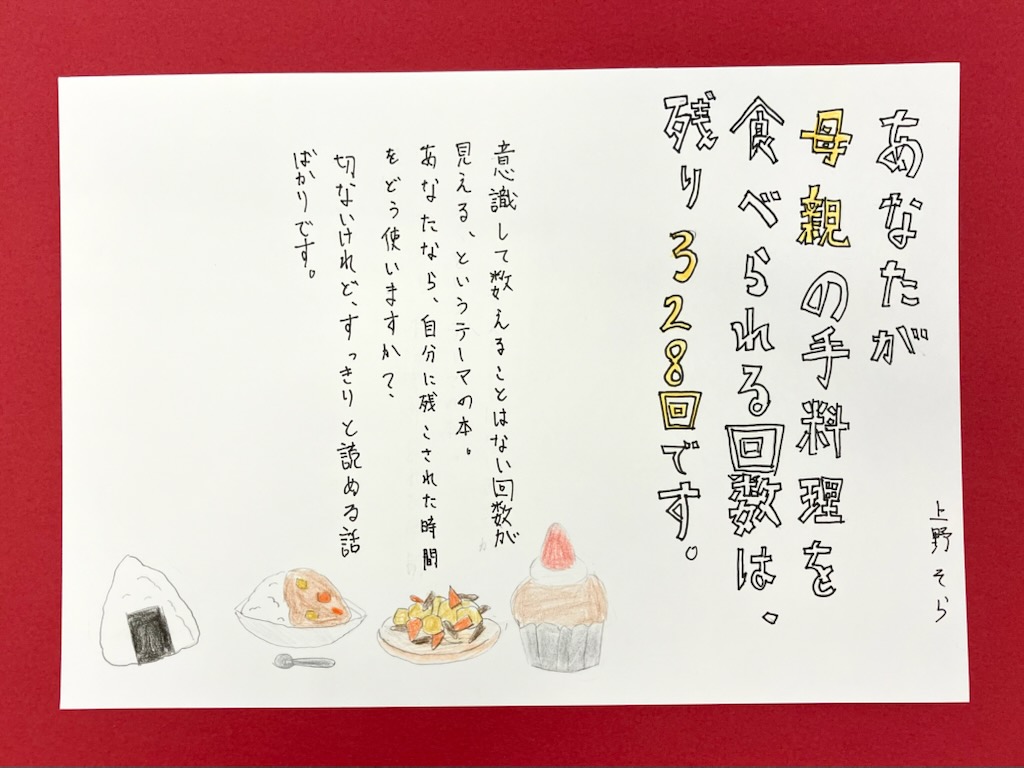 上野そら
あなたが
母親の手料理を
食べられる回数は、
残り328回です。
意識して数えることはない回数が
見える、というテーマの本。
あなたなら、自分に残こされた時間
をどう使いますか?、
切ないけれど、すっきりと読める話
ばかりです。